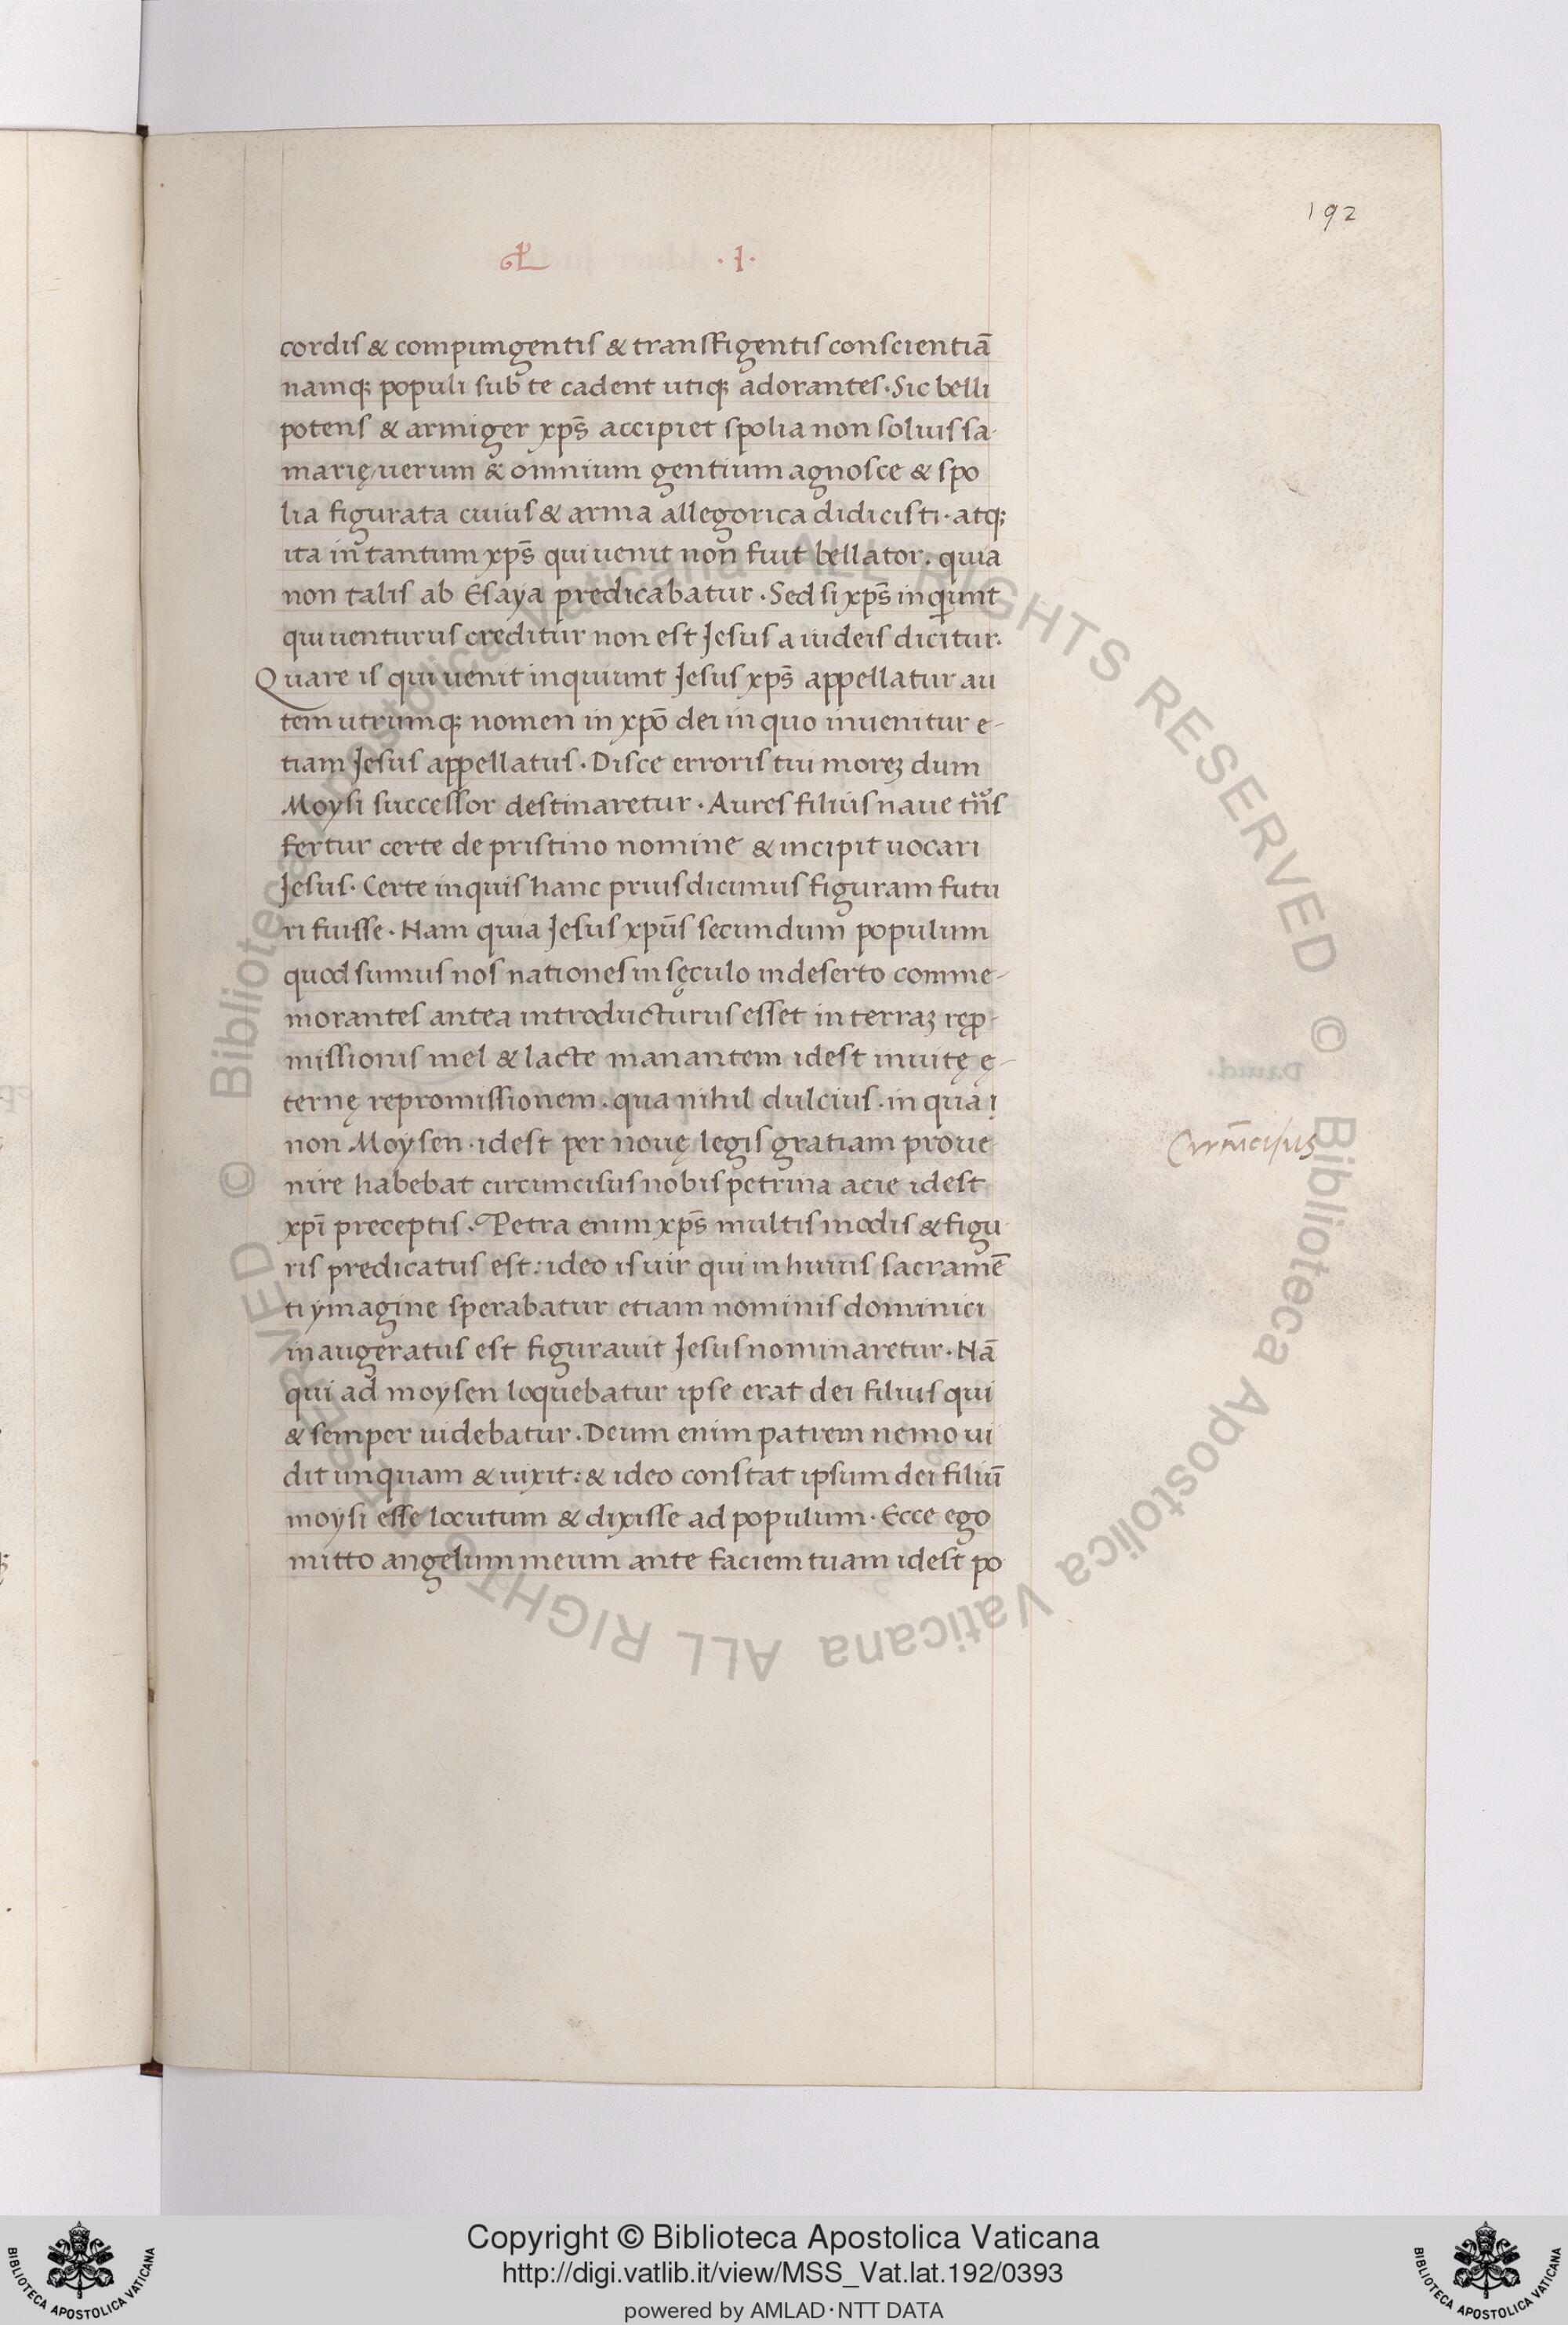 192
L .I.
cordis & compungentis & transfigentis conscientiā
namq; populi sub te cadent utiq; adorantes. Sic belli
potens & armiger xp̄s accipiet spolia non solius sa-
marię/uerum & omnium gentium agnosce & spo
lia figurata cuius & arma allegorica didicisti. atq;
ita in tantum xp̄s qui uenit non fuit bellator. quia
non talis ab Esaya predicabatur. Sed si xp̄s inquiunt
qui uenturus creditur non est Jesus a iudeis dicitur.
Quare is qui uenit inquiunt Jesus xp̄s appellatur au
tem utrumq; nomen in xp̄o dei in quo inuenitur e-
tiam Jesus appellatus. Disce erroris tui morez dum
Moysi successor destinaretur. Aures filius naue
fertur certe de pristino nomine & incipit uocari
Jesus. Certe inquis hanc prius dicimus figuram futu
ri fuisse. Nam quia Jesus xpūs secundum populum
quod sumus nos nationes in sęculo in deserto comme-
morantes antea introducturus esset in terraz ręp-
missionis mel & lacte manantem idest in uitę ę-
ternę repromissionem. qua nihil dulcius. in qua
non Moysen. idest per nouę legis gratiam proue
nire habebat circumcisus nobis petrina acie idest
xp̄i preceptis. Petra enim xp̄s multis modis & figu
ris predicatus est: ideo is uir qui in huius sacramē
ti ymagine sperabatur etiam nominis dominici
inaugeratus est figurauit Jesus nominaretur. Nā
qui ad moysen loquebatur ipse erat dei filius qui
& semper uidebatur. Deum enim patrem nemo ui
dit unquam & uixit: & ideo constat ipsum dei filiū
moysi esse locutum & dixisse ad populum. Ecce ego
mitto angelum meum ante faciem tuam idest po
Circūcisus
© Biblioteca Apostolica Vaticana ALL RIGHTS RESERVED
© Biblioteca Apostolica Vaticana ALL RIGHTS RESERVED
Copyright © Biblioteca Apostolica Vaticana
http://digi.vatlib.it/view/MSS_Vat.lat.192/0393
powered by AMLAD·NTT DATA
BIBLIOTECA APOSTOLICA VATICANA
BIBLIOTECA APOSTOLICA VATICANA